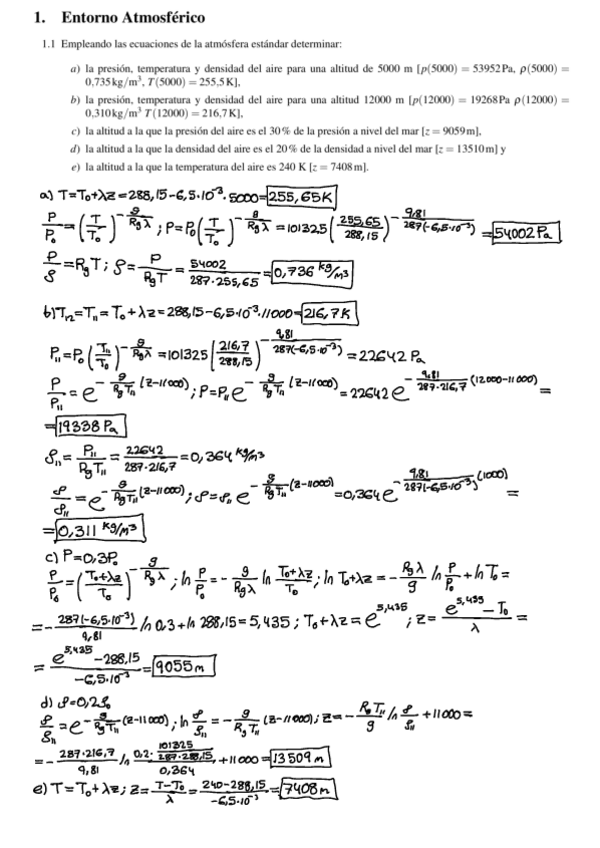 1. Entorno Atmosférico
1.1 Empleando las ecuaciones de la atmósfera estándar determinar:
a) la presión, temperatura y densidad del aire para una altitud de 5000 m [p(5000) = 53952 Pa, ρ(5000) =
0,735 kg/m³, T(5000) = 255,5 K],
b) la presión, temperatura y densidad del aire para una altitud 12000 m [p(12000) = 19268 Pa ρ(12000) =
0,310 kg/m³ T(12000) = 216,7 K],
c) la altitud a la que la presión del aire es el 30 % de la presión a nivel del mar [z = 9059 m],
d) la altitud a la que la densidad del aire es el 20 % de la densidad a nivel del mar [z = 13510 m] y
e) la altitud a la que la temperatura del aire es 240 K [z = 7408 m].
a) T=T₀+λz=288,15-6,5·10⁻³·5000=255,65K
P/P₀=(T/T₀)^(-g/(Rgλ)); P=P₀(T/T₀)^(-g/(Rgλ))=101325(255,65/288,15)^(-9,81/(287(-6,5·10⁻³)))=54002 Pa
P/ρ=RgT; ρ=P/(RgT)=54002/(287·255,65)=0,736 kg/m³
b) T₁₂=T₁₁=T₀+λz=288,15-6,5·10⁻³·11000=216,7K
P₁₁=P₀(T₁₁/T₀)^(-g/(Rgλ))=101325(216,7/288,15)^(-9,81/(287(-6,5·10⁻³)))=22642 Pa
P/P₁₁=e^(-g/(RgT₁₁)(z-11000)); P=P₁₁e^(-g/(RgT₁₁)(z-11000))=22642e^(-9,81/(287·216,7)(12000-11000))=
=19338 Pa
ρ₁₁=P₁₁/(RgT₁₁)=22642/(287·216,7)=0,364 kg/m³
ρ/ρ₁₁=e^(-g/(RgT₁₁)(z-11000)); ρ=ρ₁₁e^(-g/(RgT₁₁)(z-11000))=0,364e^(-9,81/(287(-6,5·10⁻³))(1000))=
=0,311 kg/m³
c) P=0,3P₀
P/P₀=((T₀+λz)/T₀)^(-g/(Rgλ)); ln P/P₀=-g/(Rgλ) ln (T₀+λz)/T₀; ln T₀+λz=-Rgλ/g ln P/P₀+ln T₀=
=-287(-6,5·10⁻³)/9,81 ln 0,3+ln 288,15=5,435; T₀+λz=e^(5,435); z=(e^(5,435)-T₀)/λ=
=(e^(5,435)-288,15)/(-6,5·10⁻³)=9055m
d) ρ=0,2ρ₀
ρ/ρ₁₁=e^(-g/(RgT₁₁)(z-11000)); ln ρ/ρ₁₁=-g/(RgT₁₁)(z-11000); z=-RgT₁₁/g ln ρ/ρ₁₁+11000=
=-287·216,7/9,81 ln (0,2·101325/(287·288,15))/0,364+11000=13509m
e) T=T₀+λz; z=(T-T₀)/λ=(240-288,15)/(-6,5·10⁻³)=7408m